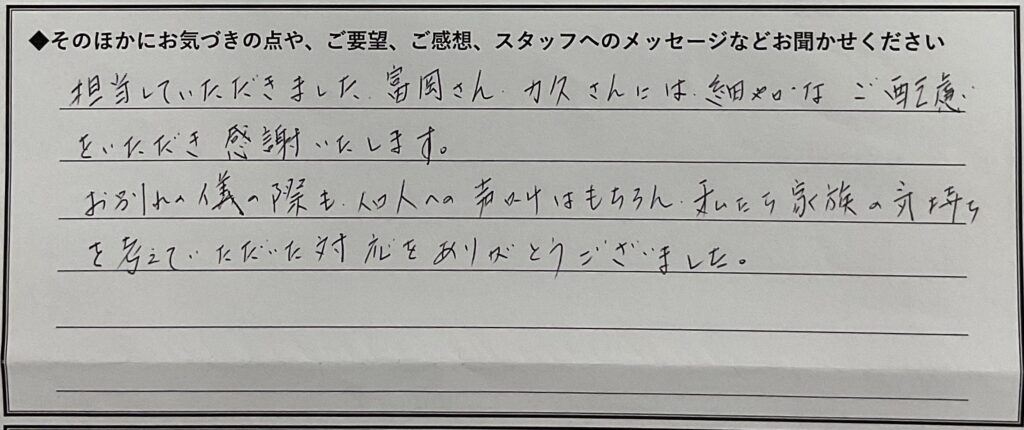 ◆そのほかにお気づきの点や、ご要望、ご感想、スタッフへのメッセージなどお聞かせください
担当していただきました、富岡さん、カスさんには、細やかなご配慮
をいただき感謝いたします。
お別れの儀の際も、知人への声かけはもちろん、私たち家族の気持ち
を考えていただいた対応をありがとうございました。